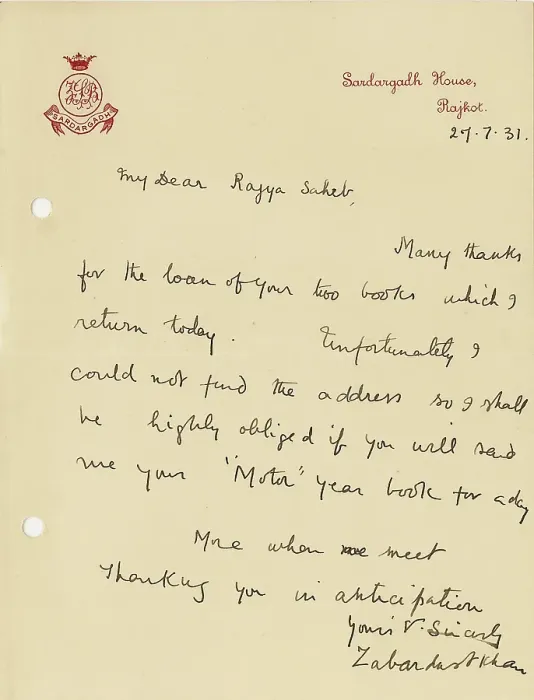 SARDARGADH
Sardargadh House,
Rajkot.
27.7.31.
My Dear Rajya Saheb,
Many thanks
for the loan of your two books which I
return today. Unfortunately I
could not find the address so I shall
be highly obliged if you will send
me your "Motor" year book for a day
More when we meet
Thanking you in anticipation
Yours V. Sincerly
Zabardast Khan